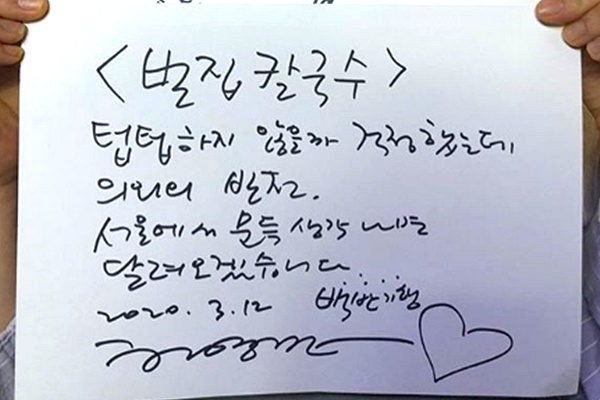 <벌집칼국수>
텁텁하지 않을까 걱정했는데
의외의 발견.
서울에서 문득 생각나면
달려오겠습니다.
2020. 3. 12 백반기행